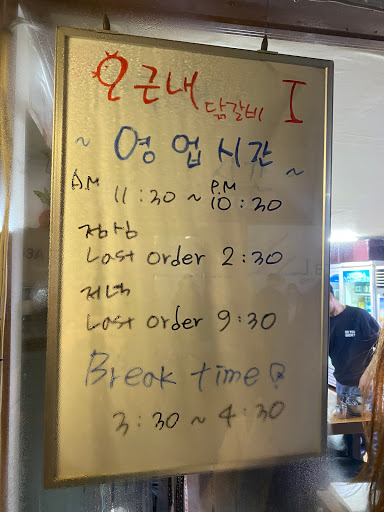 오근내 닭갈비 I
~ 영업시간 ~
A.M 11:30 ~ P.M 10:30
점심
Last order 2:30
저녁
Last order 9:30
Break time
3:30 ~ 4:30